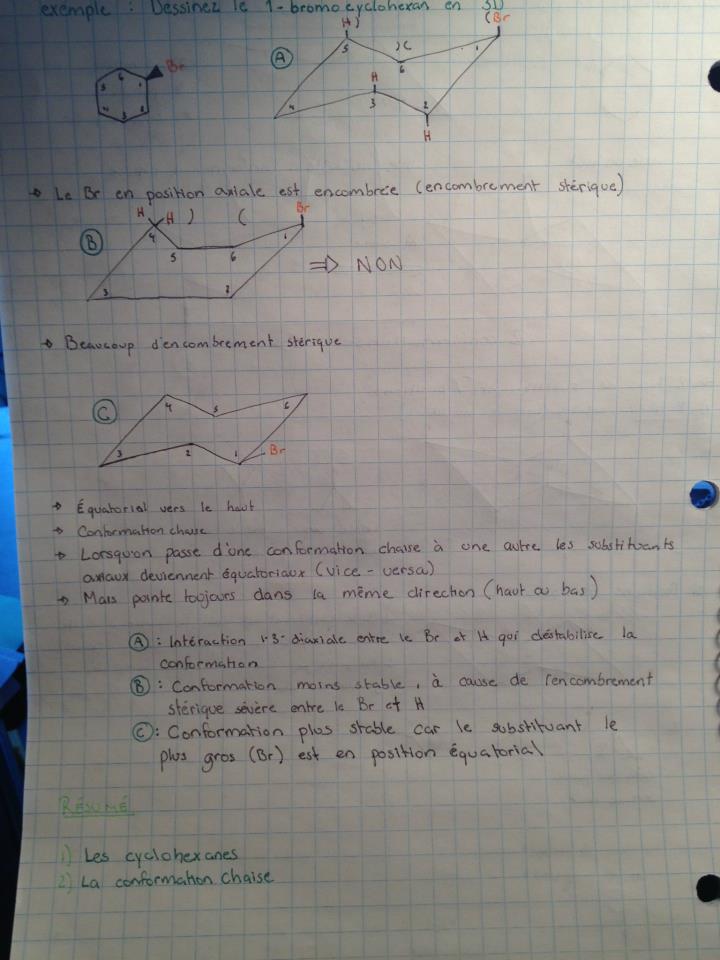 exemple : Dessinez le 1-bromocyclohexan en 3D
Br
6
5
1
4
3
2
A
H
(Br
5
)(
6
1
H
4
3
2
H
→ Le Br en position axiale est encombrée (encombrement stérique)
B
H
H
)
(
Br
4
1
5
6
3
2
⇒ NON
→ Beaucoup d'encombrement stérique
C
4
5
6
3
2
1
Br
→ Équatorial vers le haut
→ Conformation chaise
→ Lorsqu'on passe d'une conformation chaise à une autre les substituants
axiaux deviennent équatoriaux (vice-versa)
→ Mais pointe toujours dans la même direction (haut ou bas)
A : Intéraction 1-3-diaxiale entre le Br et H qui déstabilise la
conformation
B : Conformation moins stable, à cause de l'encombrement
stérique sévère entre le Br et H
C : Conformation plus stable car le substituant le
plus gros (Br) est en position équatorial
RÉSUMÉ
1) Les cyclohexanes
2) La conformation chaise